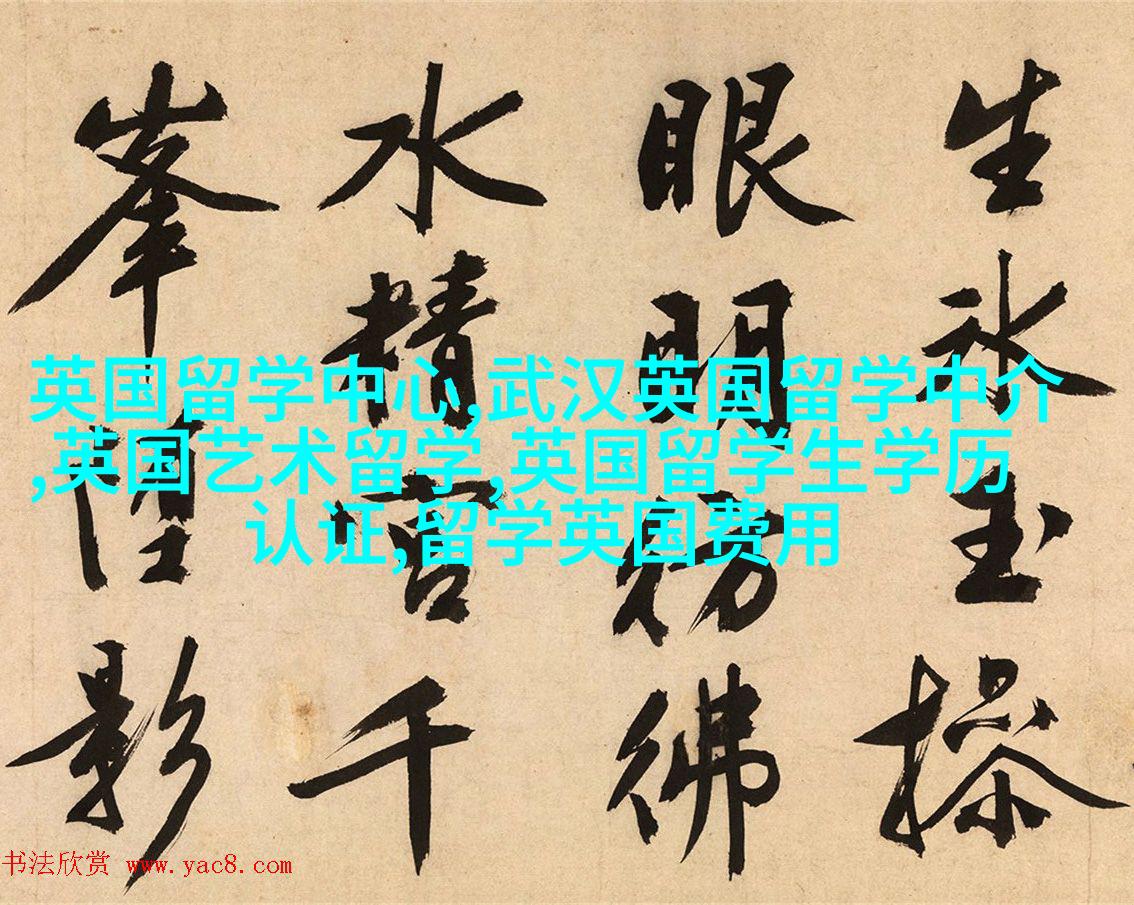 生氷玉操
眼明彷彿
水精宮千
峯影
英国留学中心,武汉英国留学中介
,英国艺术留学,英国留学生学历
认证,留学英国费用
书法欣赏 www.yac8.com